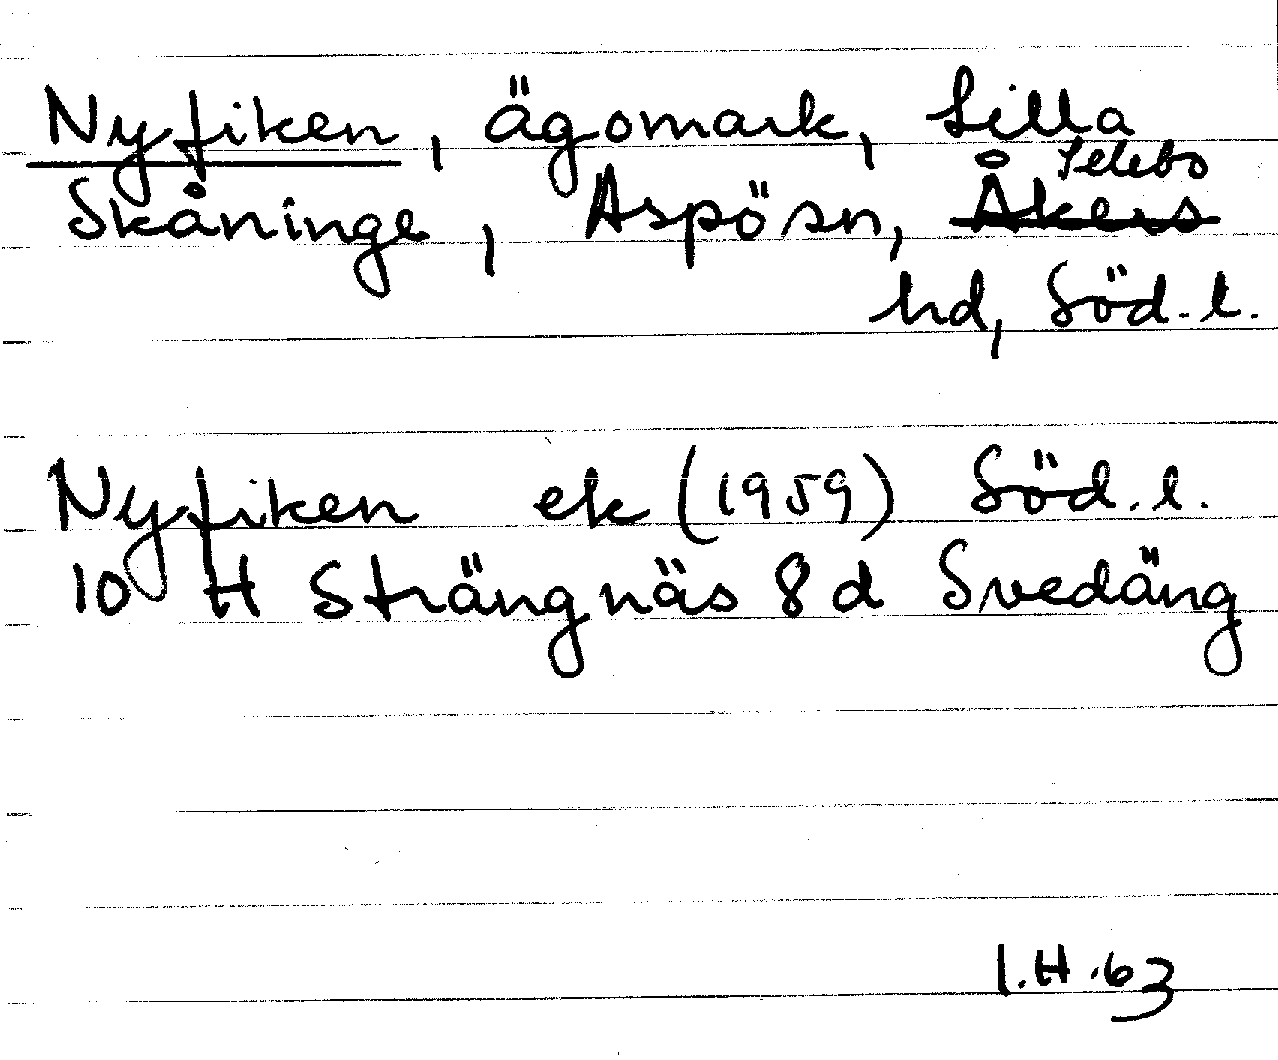 Nyfiken, ägomark, Lilla
Skåninge, Aspö sn, Åkers Selebo
hd, Söd.l.
Nyfiken ek (1959) Söd.l.
10 H Strängnäs 8 d Svedäng
I.H.63